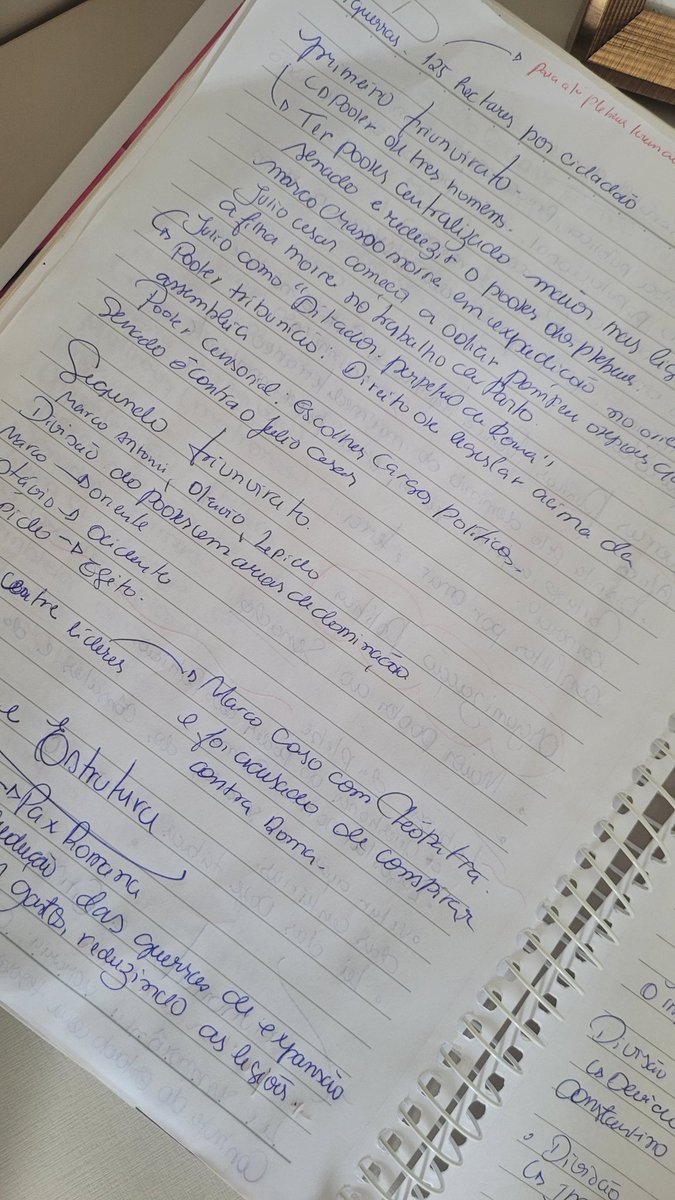 guerras 125 hectares por cidadão
para a
primeiro triunvirato.
↳ Poder de tres homens.
↳ Ter poder centralizado maior nas
senado e reduzir o poder da plebe.
marco Crasso morre em expedição no
Julio cesar começa a odiar pompeu
a final morre no trabalho de Parto.
Julio como "Ditador perpétuo de Roma",
↳ Poder tribunicio: Direito de legislar acima da
assembleia
Poder censorial: escolher cargos políticos.
Senado é contra o Julio Cesar
Segundo triunvirato.
Marco Antonio, Otávio, Lepido
Divisão do poder em areas de dominação
Marco → oriente
otávio → Ocidente
pido → Egito.
contre líderes → Marco Caso com Cleópatra.
e foi acusado de conspirar
contra Roma.
e Estrutura
→ Pax Romana
Redução das guerras de expansão
gastos, reduzindo as legiões.
O im
Divisão
↳ Devid
Constantino
• Divisão
↳